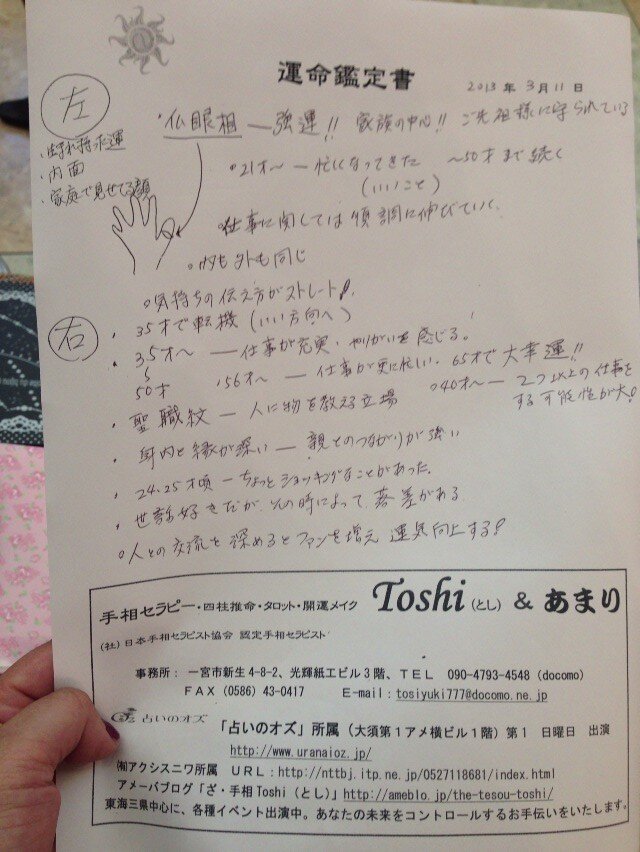 運命鑑定書
2013年3月11日
左
・生れ持った運
・内面
・家庭で見せてる顔
・仏眼相 ― 強運!! 家族の中心!! ご先祖様に守られている
○21才〜 ― 忙しくなってきた 〜50才まで続く
(いいこと)
仕事に関しては順調に伸びていく
○内も外も同じ
○気持ちの伝え方がストレート!
右
・35才で転機(いい方向へ)
・35才〜50才 ― 仕事が充実・やりがいを感じる。
・56才〜 ― 仕事が更に忙しい 65才で大幸運!!
・聖職紋 ― 人に物を教える立場
○40才〜 ― 2つ以上の仕事をする可能性が大!
・身内と縁が深い ― 親とのつながりが強い
・24、25才頃 ― ちょっとショッキングなことがあった。
・世話好きだが、その時によって落差がある
○人との交流を深めるとファンを増え 運気向上する!
手相セラピー・四柱推命・タロット・開運メイク Toshi(とし) & あまり
(社)日本手相セラピスト協会 認定手相セラピスト
事務所: 一宮市新生4-8-2、光輝紙工ビル3階、TEL 090-4793-4548 (docomo)
FAX (0586) 43-0417 E-mail:tosiyuki777@docomo.ne.jp
占いのオズ 「占いのオズ」所属(大須第1アメ横ビル1階)第1 日曜日 出演
http://www.uranaioz.jp/
㈲アクシスニワ所属 URL:http://nttbj.itp.ne.jp/0527118681/index.html
アメーバブログ「ざ・手相Toshi(とし)」http://ameblo.jp/the-tesou-toshi/
東海三県中心に、各種イベント出演中。あなたの未来をコントロールするお手伝いをいたします。